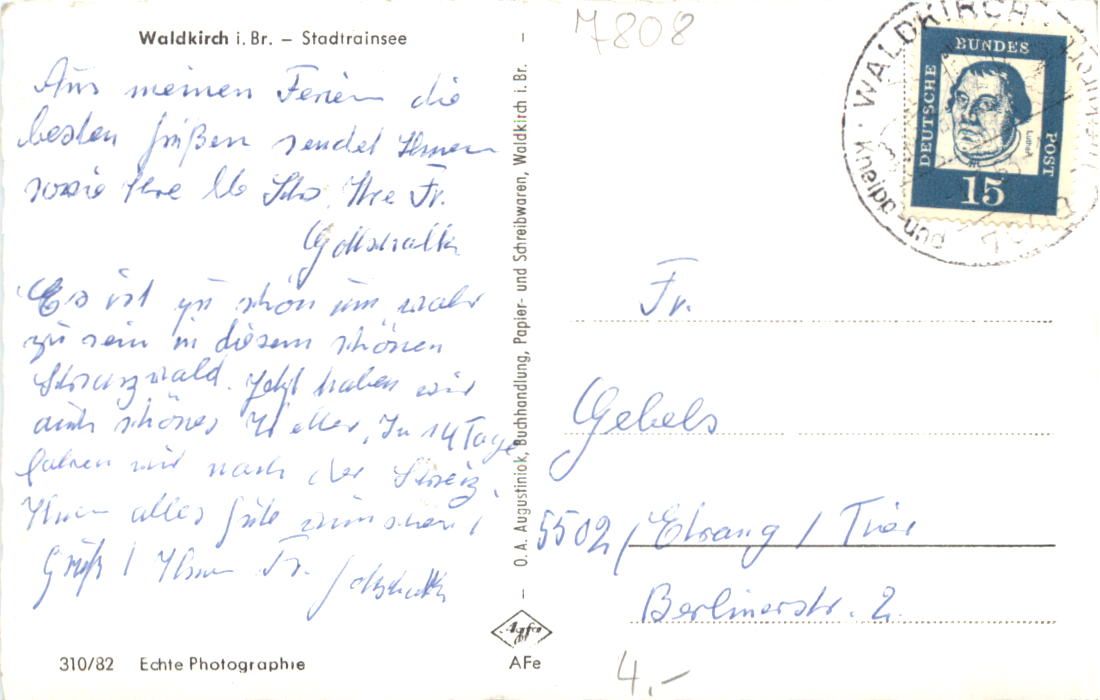 Waldkirch i. Br. – Stadtrainsee
Aus meinen Ferien die
besten Grüßen sendet Ihnen
sowie Ihre lb Ihre Fr.
Gottschalk
Es ist zu schön um wahr
zu sein in diesem schönen
Schwarzwald. Jetzt haben wir
auch schönes Wetter, In 14 Tage
fahren wir nach der Schweiz.
Ihnen alles Gute wünschen
Grüßt Ihnen Fr. Gottschalk
310/82 Echte Photographie
O. A. Augustiniok, Buchhandlung, Papier- und Schreibwaren, Waldkirch i. Br.
Agfa
AFe
7808
WALDKIRCH
Kneipp-
DEUTSCHE
BUNDES
POST
Luther
15
Fr.
Gebels
5502 / Ehrang / Trier
Berlinerstr. 2.
4,-